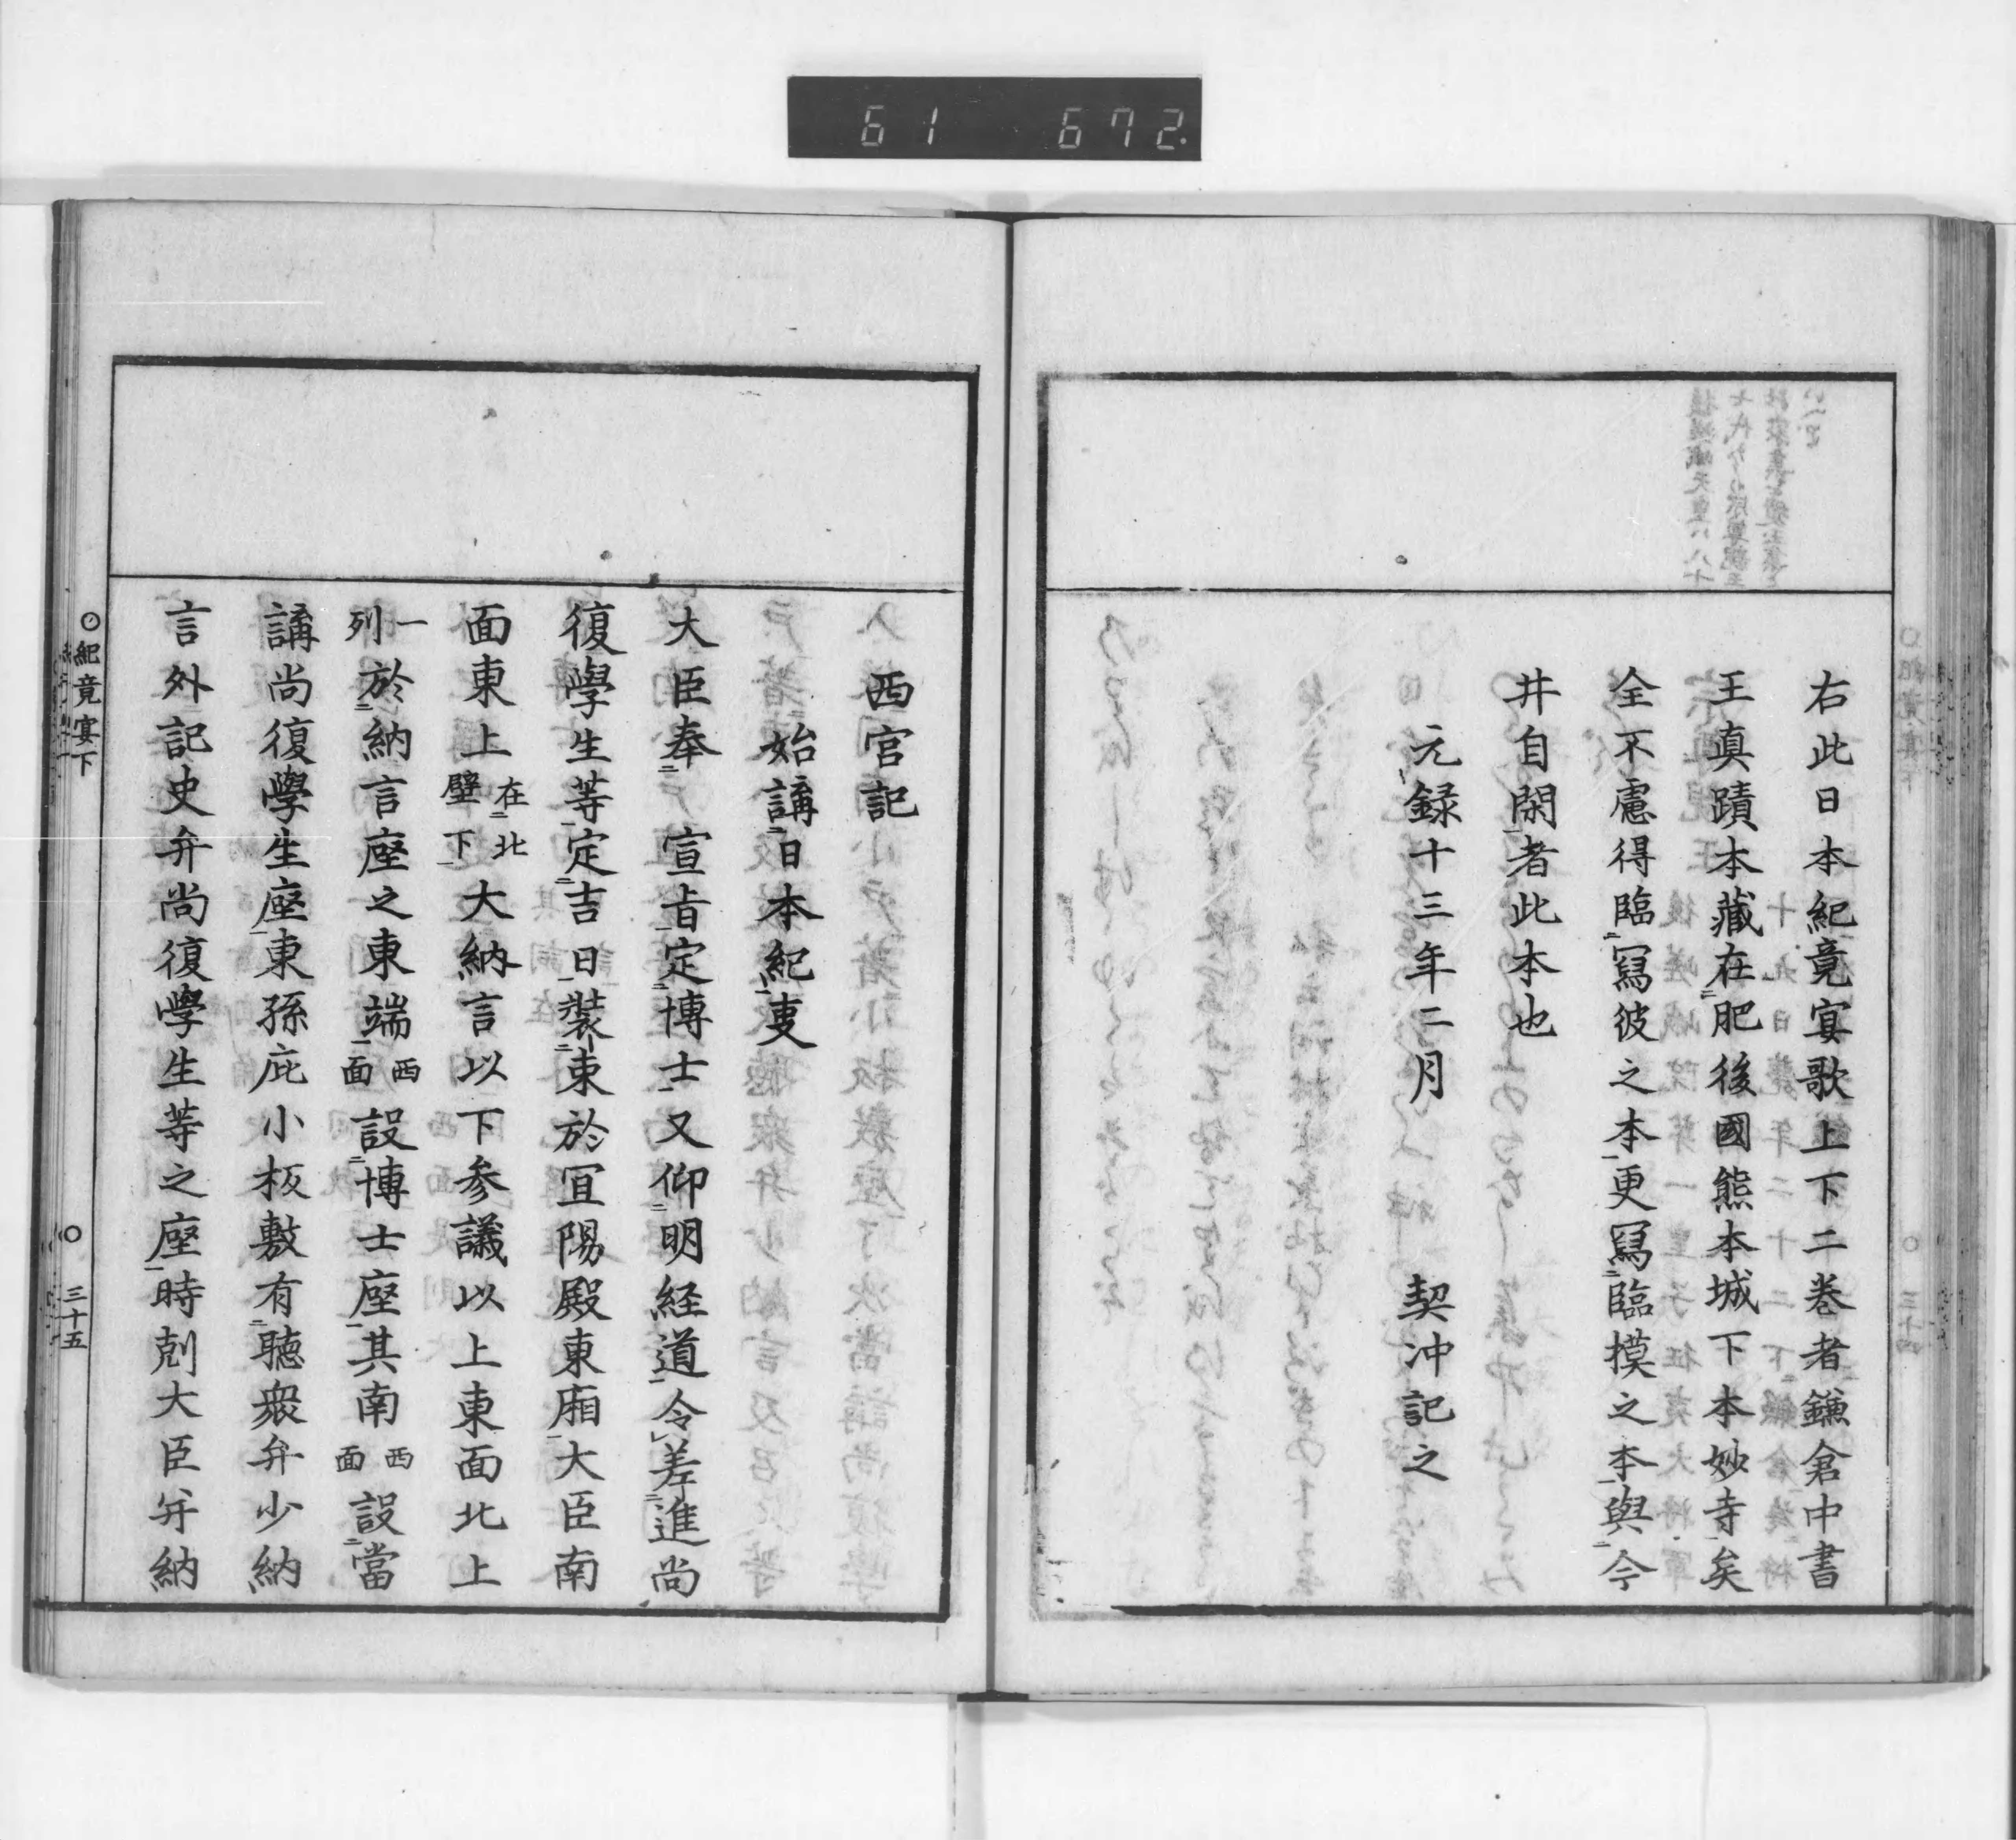 61 672
右此日本紀竟宴歌上下二巻者鎌倉中書
王真蹟本藏在肥後國熊本城下本妙寺矣
全不慮得臨寫彼之本更寫臨摸之本與今
井自閑者此本也
元録十三年二月 契冲記之
西宮記
始講日本紀叓
大臣奉 宣旨定博士又仰明経道令差進尚
復學生等定吉日裝束於冝陽殿東廂大臣南
面東上在北壁下大納言以下参議以上東面北上
一列於納言座之東端西面設博士座其南西面設當
講尚復學生座東孫庇小板敷有聴衆弁少納
言外記史弁尚復學生等之座時剋大臣弁納
○紀竟宴下 ○ 三十五